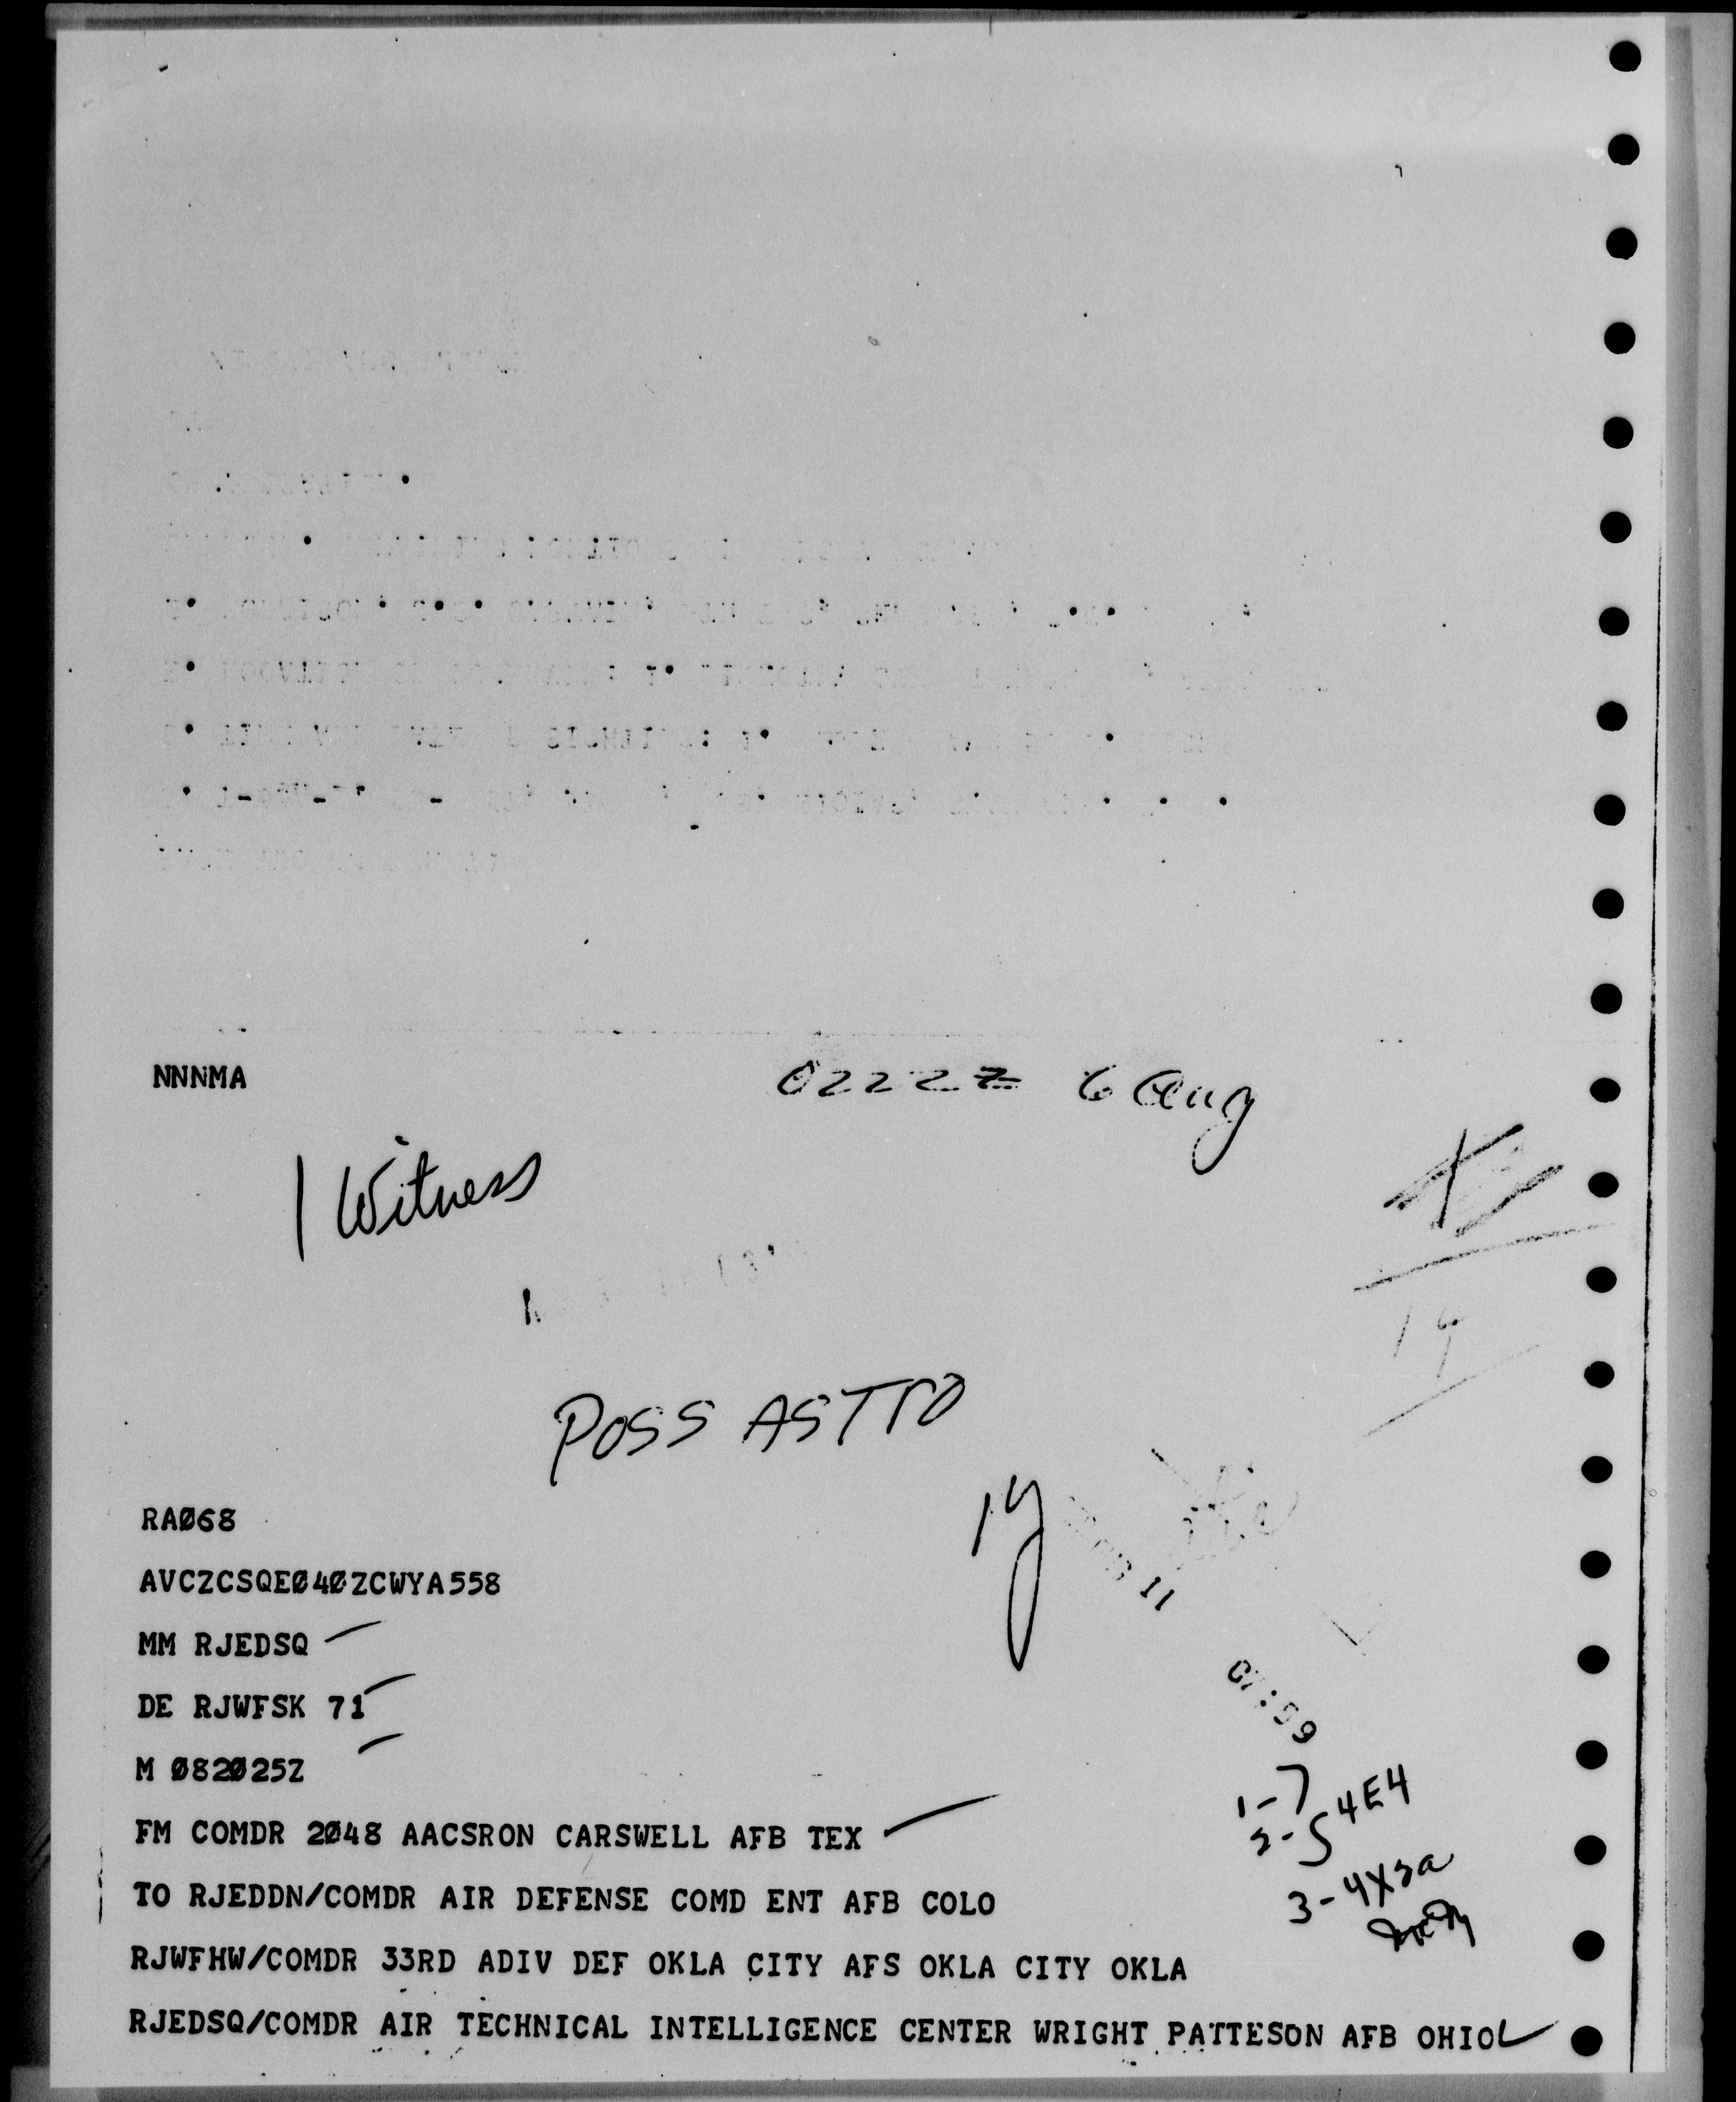 NNNMA
0222Z 6 Aug
1 Witness
POSS ASTRO
14
RAØ68
AVCZCSQEØ4ØZCWYA558
11
MM RJEDSQ
DE RJWFSK 71
07:59
M Ø82Ø25Z
1-7
2-5 4E4
FM COMDR 2Ø48 AACSRON CARSWELL AFB TEX
3-4X2a
TO RJEDDN/COMDR AIR DEFENSE COMD ENT AFB COLO
RJWFHW/COMDR 33RD ADIV DEF OKLA CITY AFS OKLA CITY OKLA
RJEDSQ/COMDR AIR TECHNICAL INTELLIGENCE CENTER WRIGHT PATTESON AFB OHIO